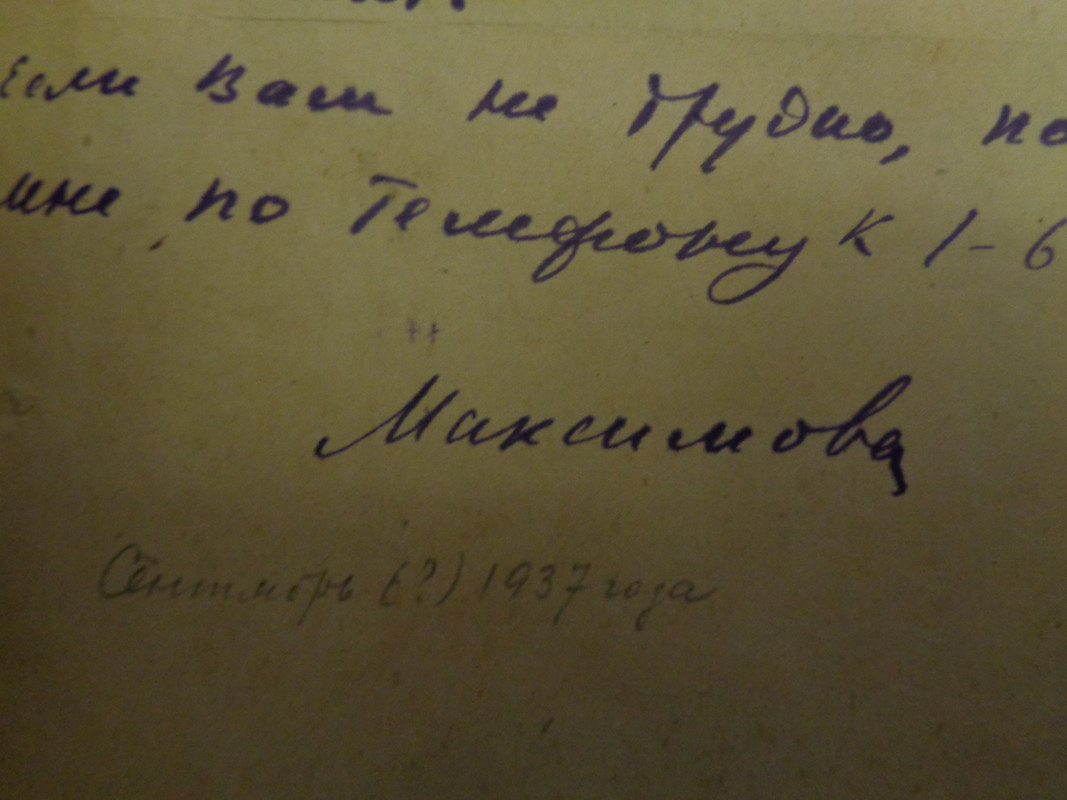 Если Вам не трудно, по
мне по Телефону К 1-6
Максимова
Сентябрь (?) 1937 года